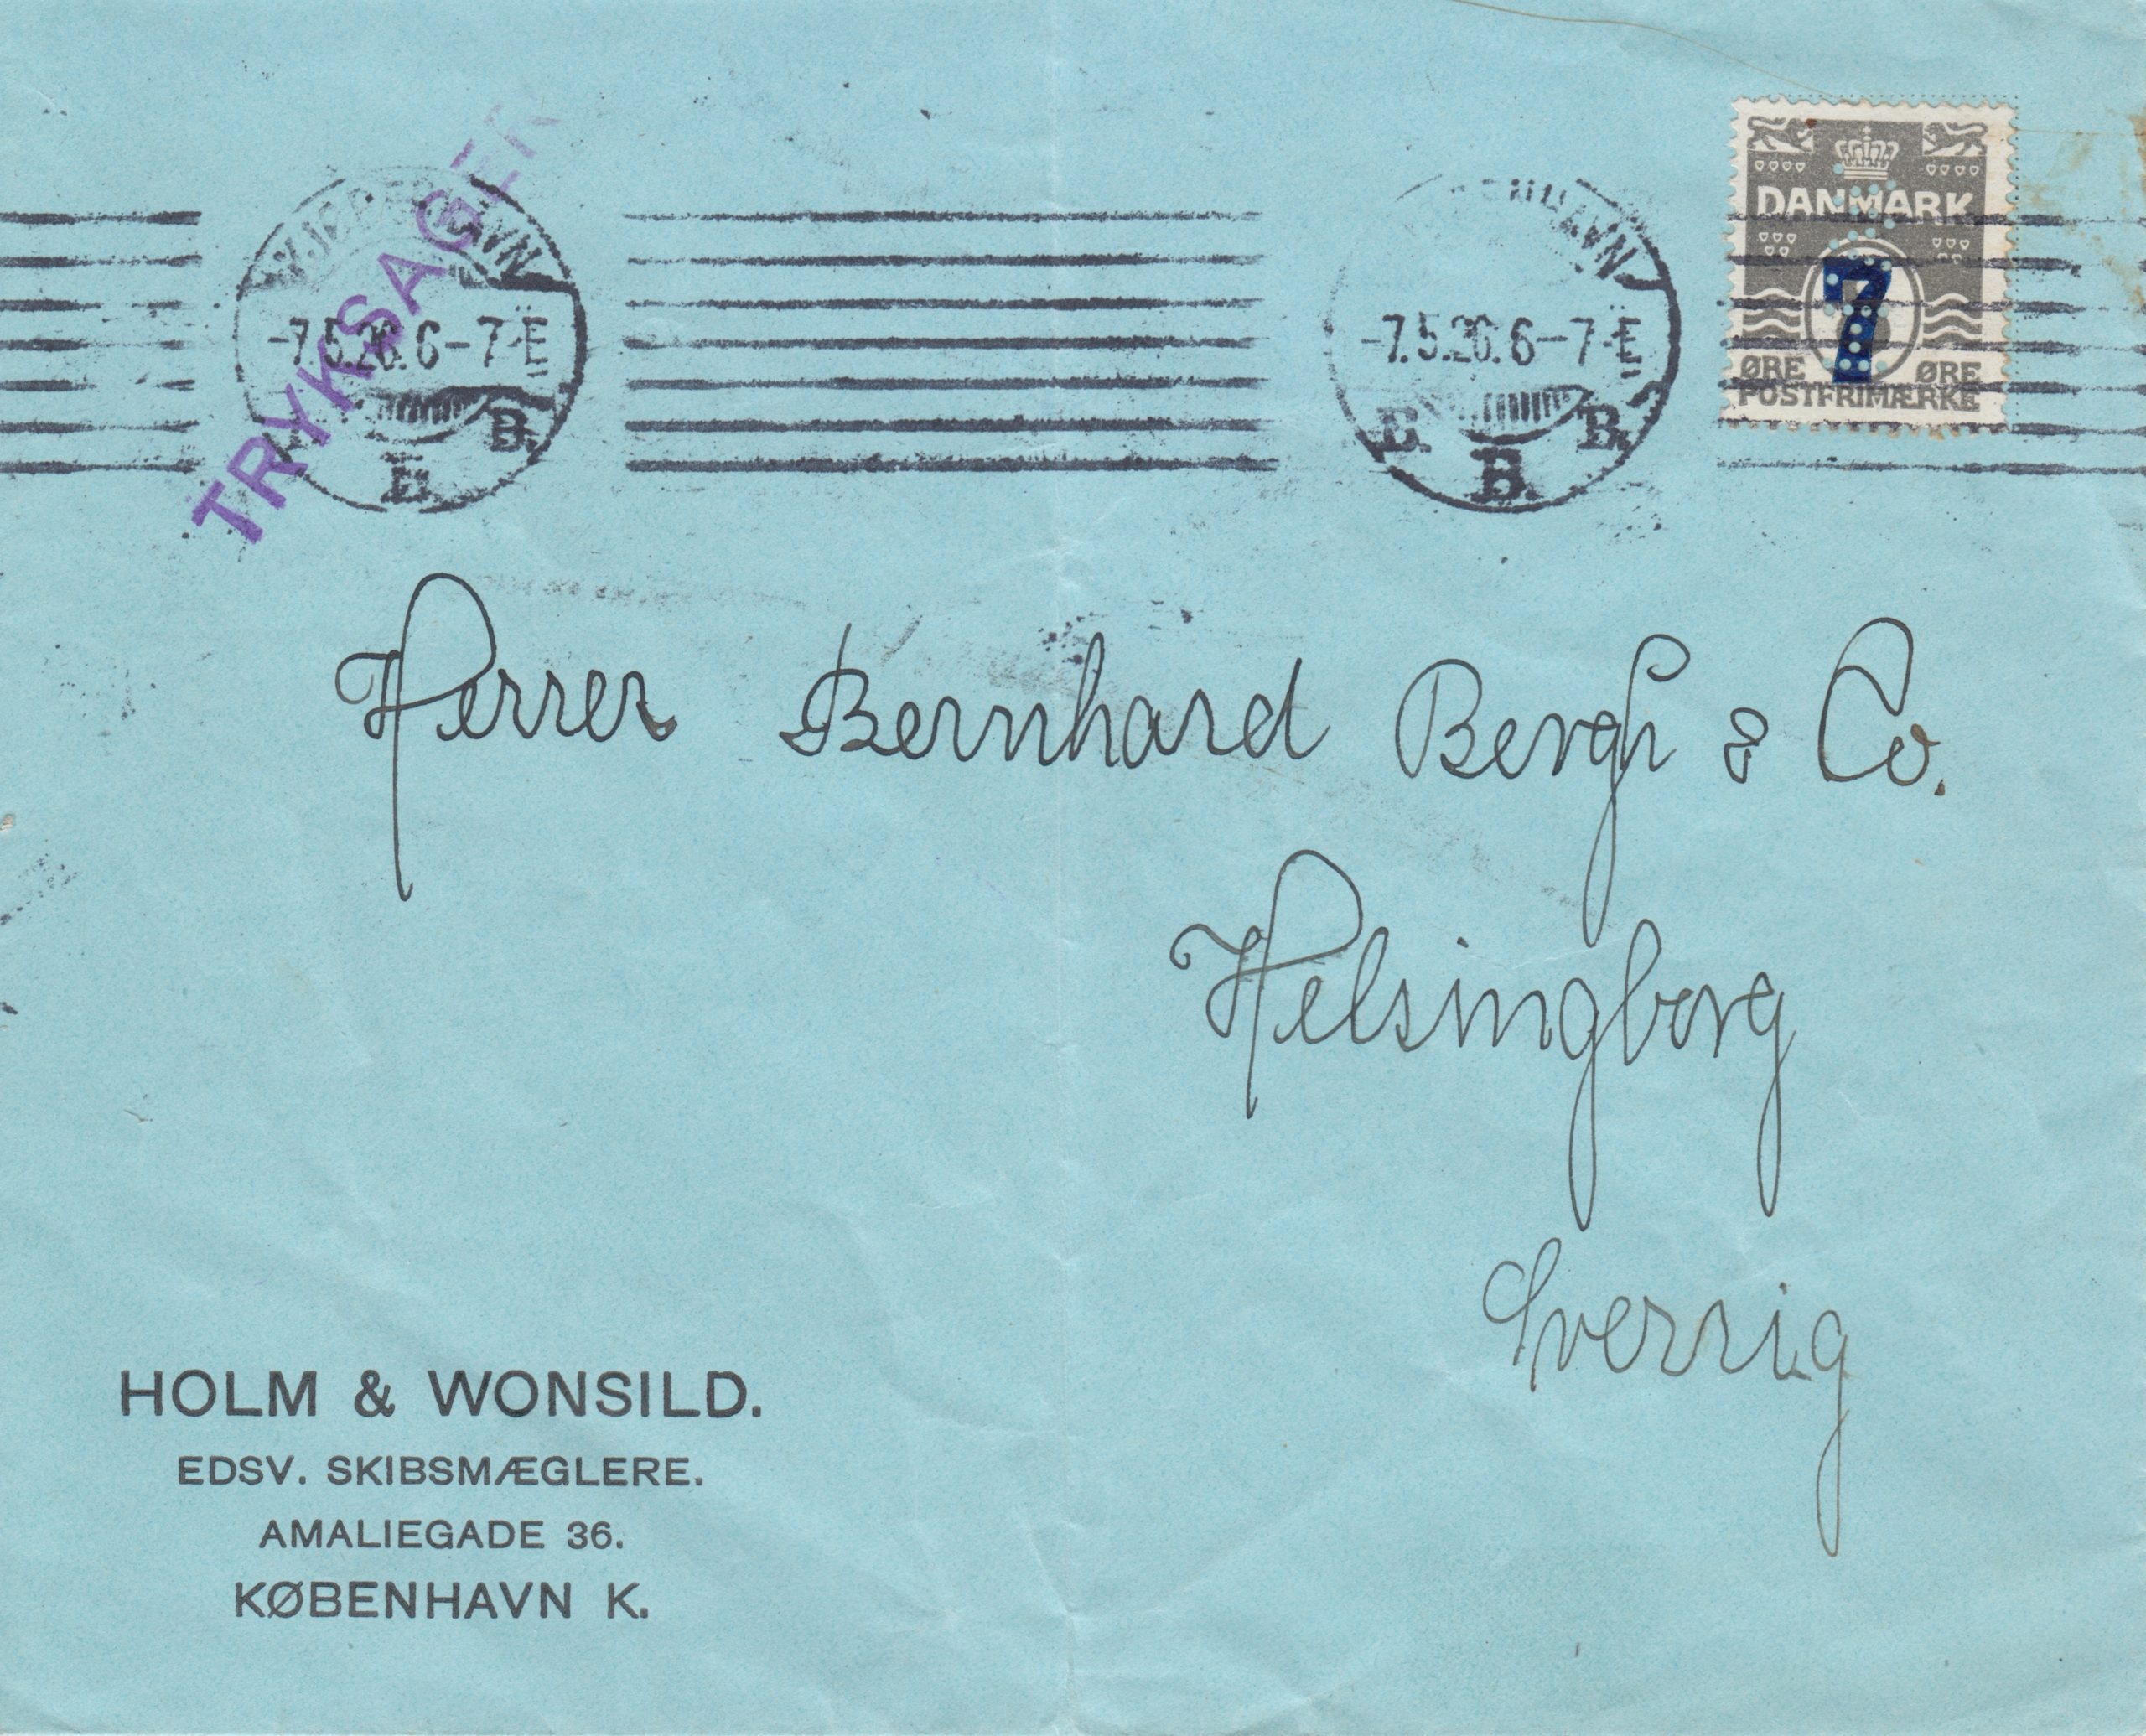 TRYKSAGER
KJØBENHAVN
-7.5.26. 6-7 E
B.
B.
KJØBENHAVN
-7.5.26. 6-7 E
B. B. B.
DANMARK
7
ØRE ØRE
POSTFRIMÆRKE
Herrer Bernhard Bergh & Co.
Helsingborg
Sverrig
HOLM & WONSILD.
EDSV. SKIBSMÆGLERE.
AMALIEGADE 36.
KØBENHAVN K.